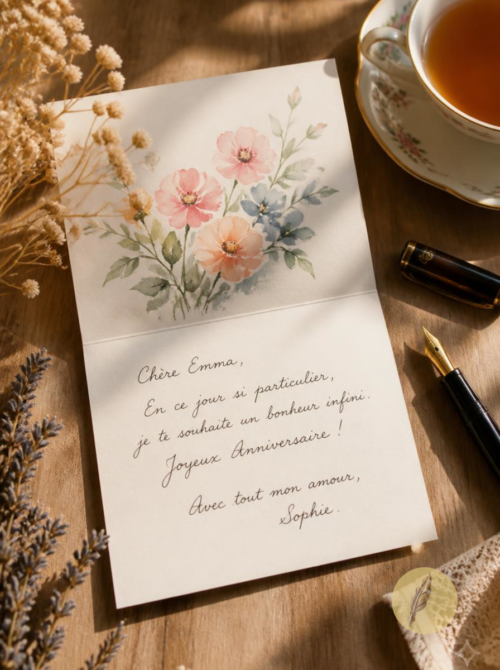 Chère Emma,
En ce jour si particulier,
je te souhaite un bonheur infini.
Joyeux Anniversaire !
Avec tout mon amour,
Sophie.